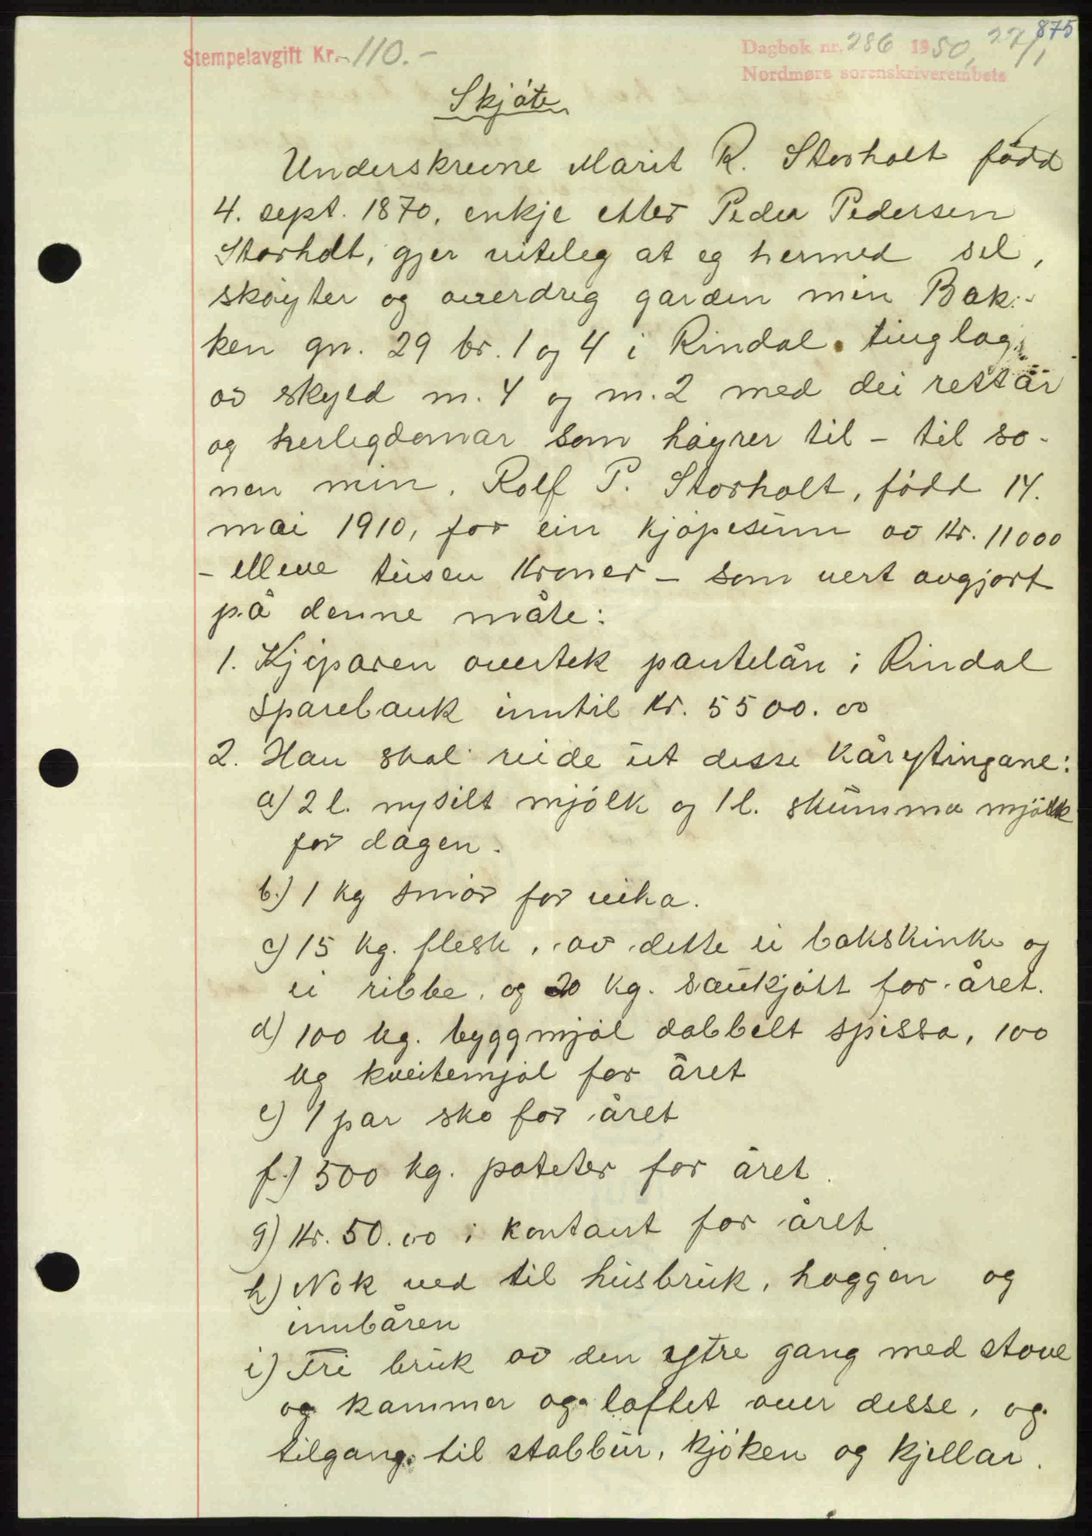 875
Stempelavgift Kr. 110.-
Dagbok nr. 286 1950, 27/1
Nordmøre sorenskriverembete
Skjøte
Underskrevne Marit R. Storholt född
4. sept. 1870, enkje etter Peder Pedersen
Storholt, gjer viteleg at eg hermed sel,
skøyter og overdreg garden min Bak-
ken gn. 29 br. 1 og 4 i Rindal tinglag
av skyld m. 4 og m. 2 med dei rettar
og herlegdomar som høyrer til - til so-
nen min, Rolf P. Storholt, född 14.
mai 1910, for ein kjøpesum av Kr. 11000
- elleve tusen Kroner - som vert avgjort
på denne måte:
1. Kjøparen overtek pantelån i Rindal
Sparebank inntil Kr. 5500.00
2. Han skal reide ut desse kårytingane:
a) 2 l. nysilt mjólk og 1 l. skumma mjólk
for dagen.
b.) 1 kg smør for veka.
c) 15 kg. flesk, av dette ei bakskinke og
ei ribbe, og 20 kg. saukjøtt for året.
d) 100 kg. byggmjøl dobbelt spissa, 100
kg kveitemjøl for året
e) 1 par sko for året
f.) 500 kg. poteter for året
g) Kr. 50.00 i kontant for året
h) Nok ved til husbruk, hoggen og
innbåren
i) Fri bruk av den ytre gang med stove
og kammer og loftet over desse, og
tilgang til stabbur, kjøken og kjellar.